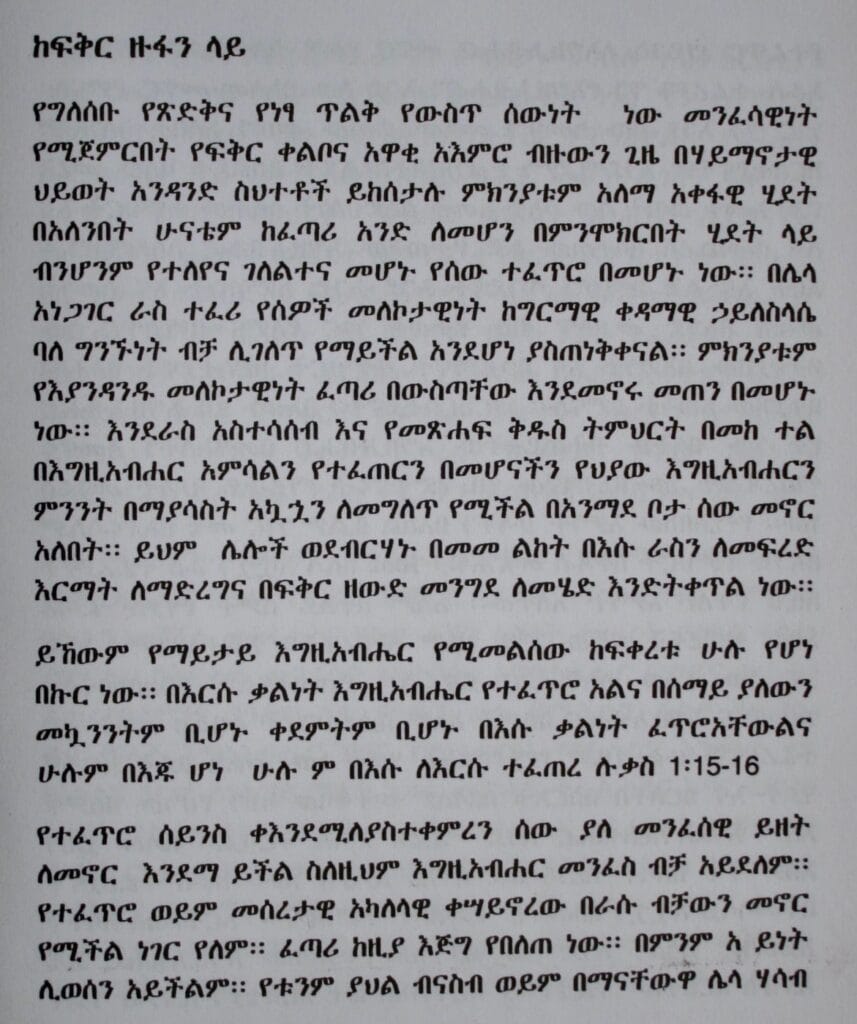 ከፍቅር ዙፋን ላይ
የግለሰቡ የጽድቅና የነፃ ጥልቅ የውስጥ ሰውነት ነው መንፈሳዊነት
የሚጀምርበት የፍቅር ቀልቦና አዋቂ አእምሮ ብዙውን ጊዜ በሃይማኖታዊ
ህይወት አንዳንድ ስህተቶች ይከሰታሉ ምክንያቱም አለማ አቀፋዊ ሂደት
በአለንበት ሁናቴም ከፈጣሪ አንድ ለመሆን በምንሞክርበት ሂደት ላይ
ብንሆንም የተለየና ገለልተና መሆኑ የሰው ተፈጥሮ በመሆኑ ነው። በሌላ
አነጋገር ራስ ተፈሪ የሰዎች መለኮታዊነት ከግርማዊ ቀዳማዊ ኃይለስላሴ
ባለ ግንኙነት ብቻ ሊገለጥ የማይችል እንደሆነ ያስጠነቅቀናል። ምክንያቱም
የእያንዳንዱ መለኮታዊነት ፈጣሪ በውስጣቸው እንደመኖሩ መጠን በመሆኑ
ነው። እንደራስ አስተሳሰብ እና የመጽሐፍ ቅዱስ ትምህርት በመከ ተል
በእግዚአብሐር አምሳልን የተፈጠርን በመሆናችን የህያው እግዚአብሐርን
ምንንት በማያሳስት አኳኋን ለመግለጥ የሚችል በአንማደ ቦታ ሰው መኖር
አለበት። ይህም ሌሎች ወደብርሃኑ በመመ ልከት በእሱ ራስን ለመፍረድ
እርማት ለማድረግና በፍቅር ዘውድ መንግደ ለመሄድ እንድትቀጥል ነው።
ይኸውም የማይታይ እግዚአብሔር የሚመልሰው ከፍቀረቱ ሁሉ የሆነ
በኩር ነው። በእርሱ ቃልነት እግዚአብሔር የተፈጥሮ አልና በሰማይ ያለውን
መኳንንትም ቢሆኑ ቀደምትም ቢሆኑ በእሱ ቃልነት ፈጥሮአቸውልና
ሁሉም በእጁ ሆነ ሁሉ ም በእሱ ለእርሱ ተፈጠረ ሉቃስ 1፡15-16
የተፈጥሮ ሰይንስ ቀእንደሚለያስተቀምረን ሰው ያለ መንፈሰዊ ይዘት
ለመኖር እንደማ ይችል ስለዚህም እግዚአብሐር መንፈስ ብቻ አይደለም።
የተፈጥሮ ወይም መሰረታዊ አካለላዊ ቀሣይኖረው በራሱ ብቻውን መኖር
የሚችል ነገር የለም። ፈጣሪ ከዚያ እጅግ የበለጠ ነው። በምንም አ ይነት
ሊወሰን አይችልም። የቱንም ያህል ብናስብ ወይም በማናቸውዋ ሌላ ሃሳብ